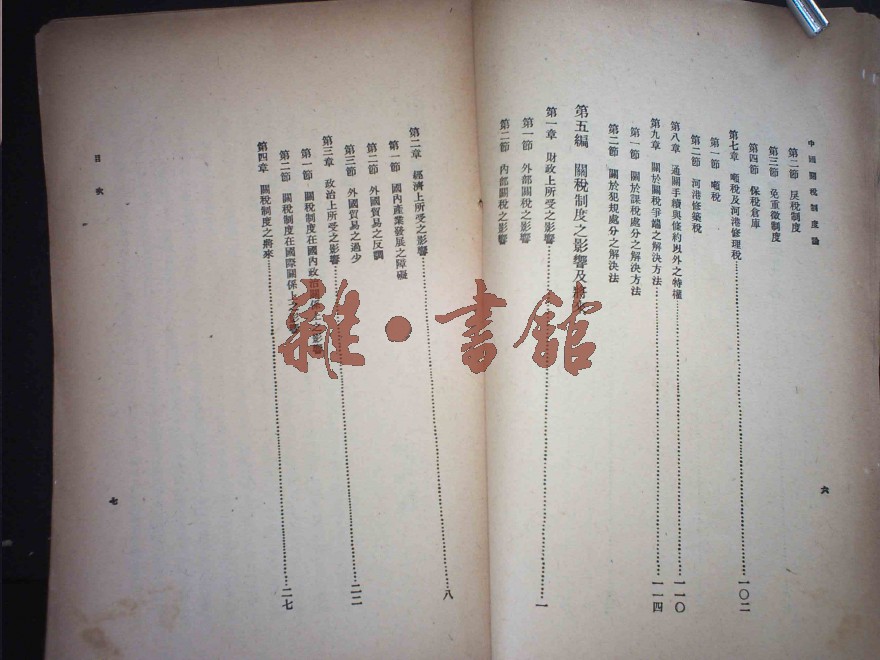 中國關稅制度論
第二節 戾稅制度
第三節 免重徵制度
第四節 保稅倉庫
第七章 噸稅及河港修理稅……一〇二
第一節 噸稅
第二節 河港修築稅
第八章 通關手續與條約以外之特權……一一〇
第九章 關於關稅爭端之解決方法……一一四
第一節 關於課稅處分之解決方法
第二節 關於犯規處分之解決法
第五編 關稅制度之影響及將來
第一章 財政上所受之影響……一
第一節 外部關稅之影響
第二節 內部關稅之影響
六
第二章 經濟上所受之影響……八
第一節 國內產業發展之障礙
第二節 外國貿易之反調
第三節 外國貿易之過少
第三章 政治上所受之影響……二二
第一節 關稅制度在國內政治關係上之影響
第二節 關稅制度在國際關係上之影響
第四章 關稅制度之將來……二七
目次
七
雜·書館